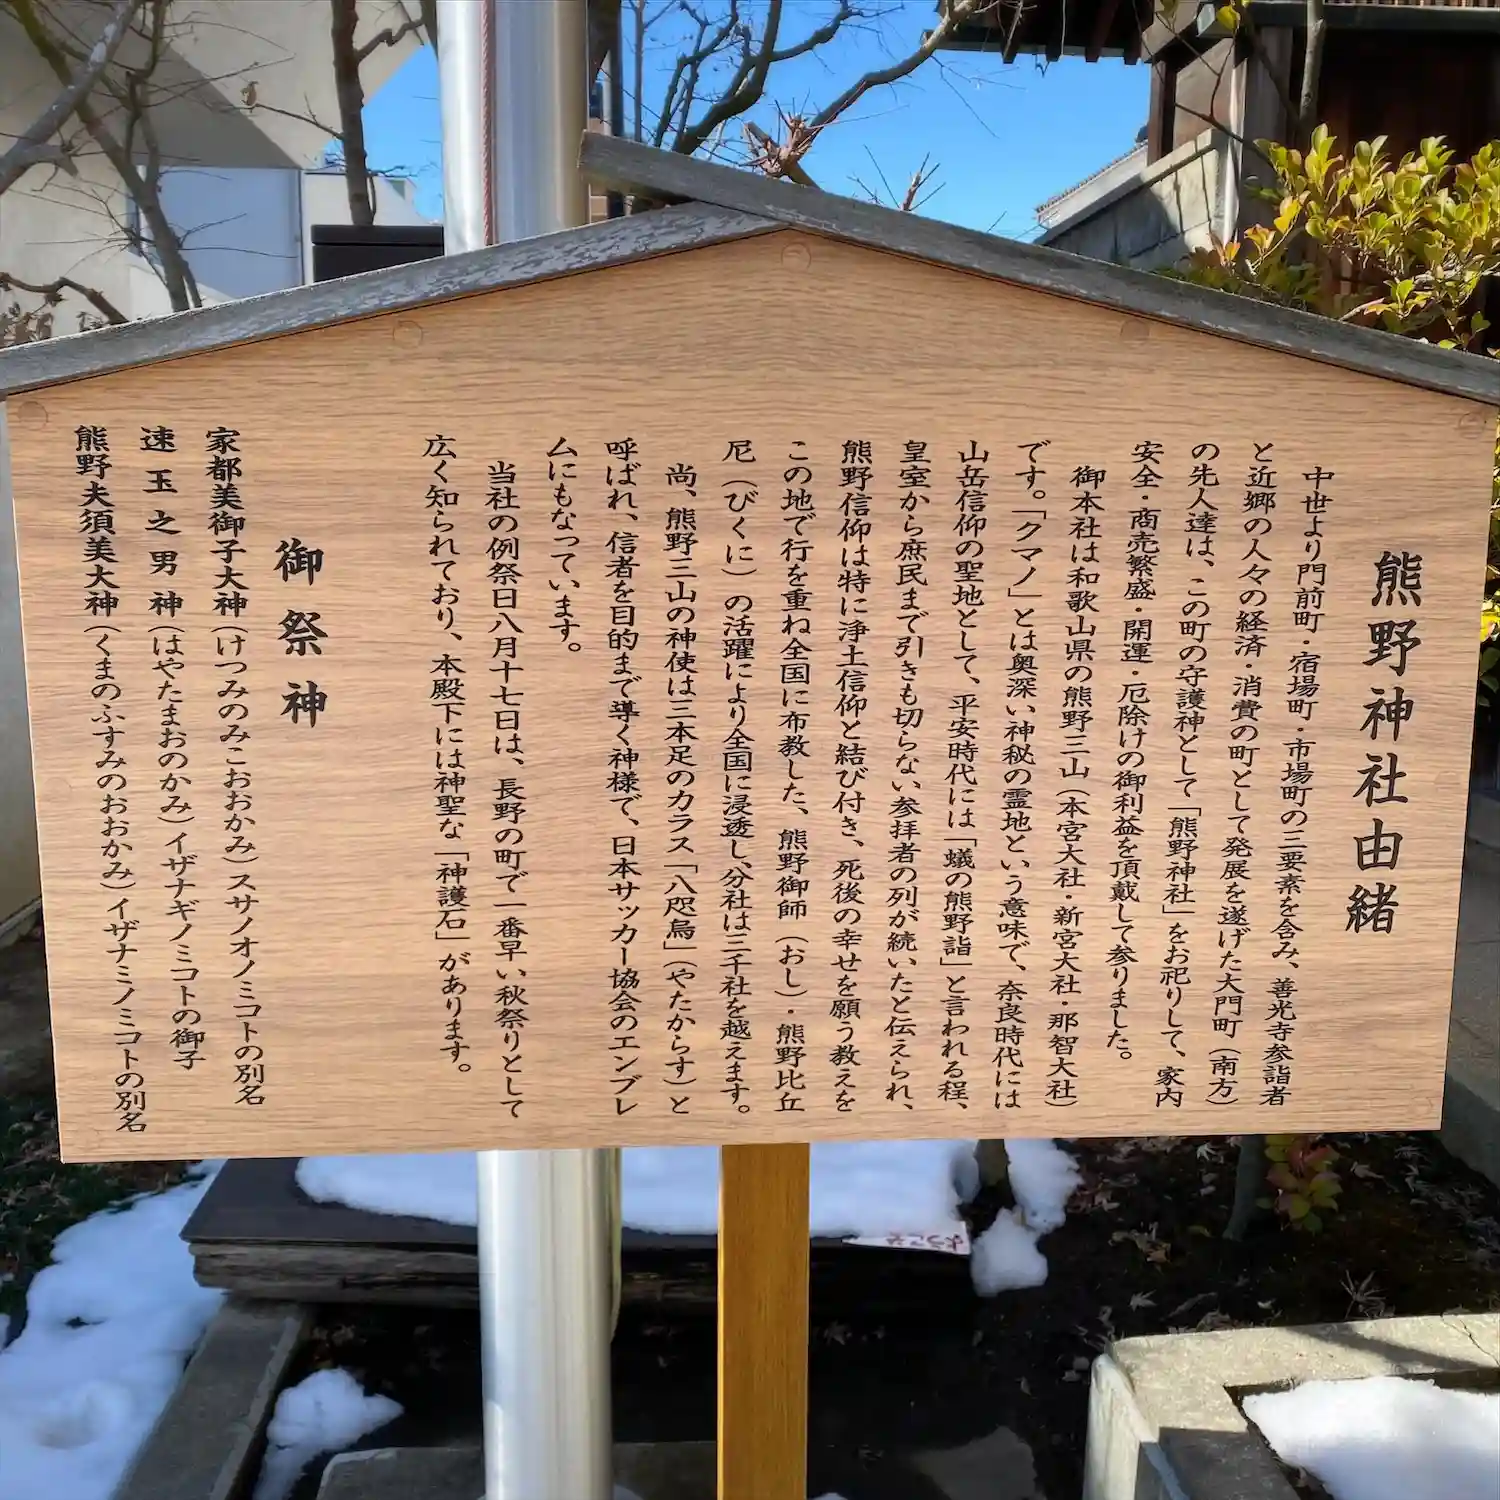 熊野神社由緒
中世より門前町・宿場町・市場町の三要素を含み、善光寺参詣者
と近郷の人々の経済・消費の町として発展を遂げた大門町（南方）
の先人達は、この町の守護神として「熊野神社」をお祀りして、家内
安全・商売繁盛・開運・厄除けの御利益を頂戴して参りました。
御本社は和歌山県の熊野三山（本宮大社・新宮大社・那智大社）
です。「クマノ」とは奥深い神秘の霊地という意味で、奈良時代には
山岳信仰の聖地として、平安時代には「蟻の熊野詣」と言われる程、
皇室から庶民まで引きも切らない参拝者の列が続いたと伝えられ、
熊野信仰は特に浄土信仰と結び付き、死後の幸せを願う教えを
この地で行を重ね全国に布教した、熊野御師（おし）・熊野比丘
尼（びくに）の活躍により全国に浸透し、分社は三千社を越えます。
尚、熊野三山の神使は三本足のカラス「八咫烏」（やたからす）と
呼ばれ、信者を目的まで導く神様で、日本サッカー協会のエンブレ
ムにもなっています。
当社の例祭日八月十七日は、長野の町で一番早い秋祭りとして
広く知られており、本殿下には神聖な「神護石」があります。
御祭神
家都美御子大神（けつみのみこおおかみ）スサノオノミコトの別名
速玉之男神（はやたまおのかみ）イザナギノミコトの御子
熊野夫須美大神（くまのふすみのおおかみ）イザナミノミコトの別名
ようこそ